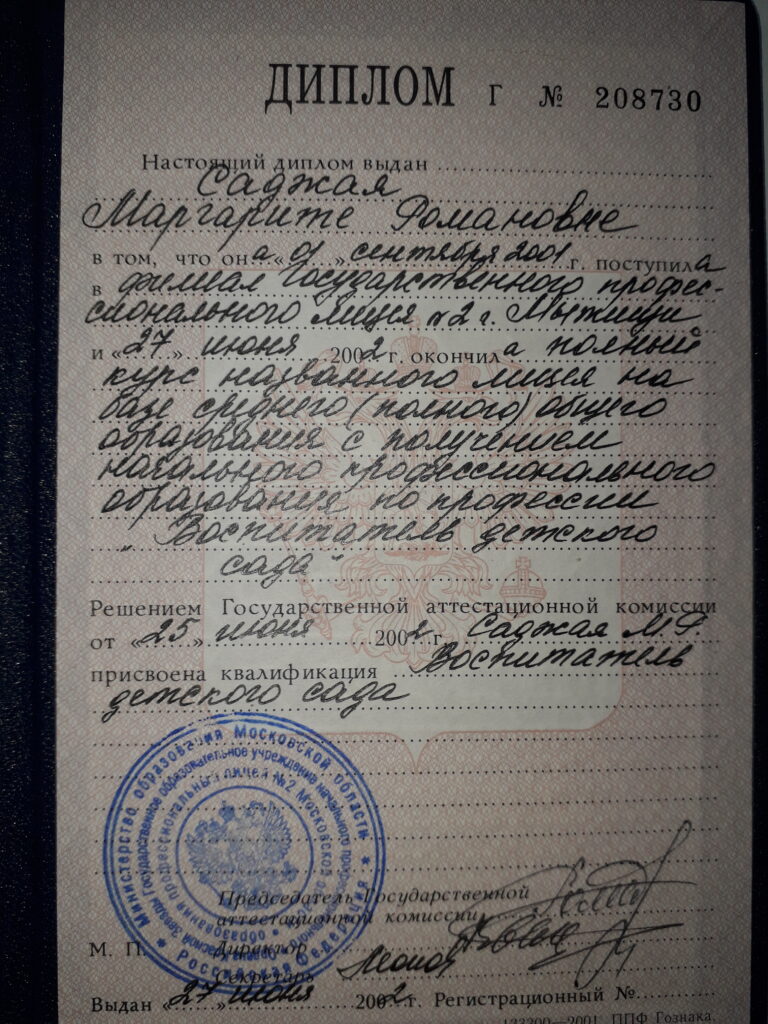 ДИПЛОМ Г № 208730
Настоящий диплом выдан
Саджая
Маргарите Романовне
в том, что она «01» сентября 2001 г. поступила
в филиал Государственного профес-
сионального лицея №2 г. Мытищи
и «27» июня 2002 г. окончила полный
курс названного лицея на
базе среднего (полного) общего
образования с получением
начального профессионального
образования по профессии
"Воспитатель детского
сада"
Решением Государственной аттестационной комиссии
от «25» июня 2002 г. Саджая М.Р.
присвоена квалификация Воспитатель
детского сада
Министерство образования Московской области
Российская Федерация
Государственное образовательное учреждение начального
профессиональный лицей №2 Московской
образования
Председатель Государственной
аттестационной комиссии
М. П. Директор
Секретарь
Выдан «27» июня 2002 г. Регистрационный №
ППФ Гознака.